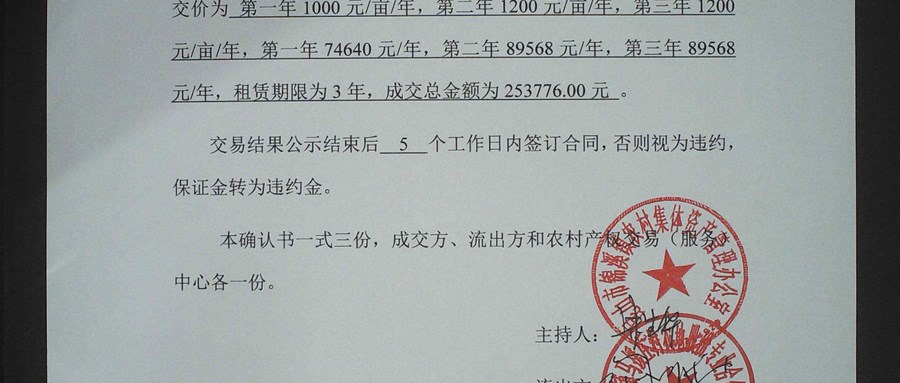 交价为 第一年 1000 元/亩/年，第二年 1200 元/亩/年，第三年 1200
元/亩/年，第一年 74640 元/年，第二年 89568 元/年，第三年 89568
元/年，租赁期限为 3 年，成交总金额为 253776.00 元 。
交易结果公示结束后 5 个工作日内签订合同，否则视为违约，
保证金转为违约金。
本确认书一式三份，成交方、流出方和农村产权交易（服务）
中心各一份。
山市锦溪镇农村集体资产管理办公室
主持人：